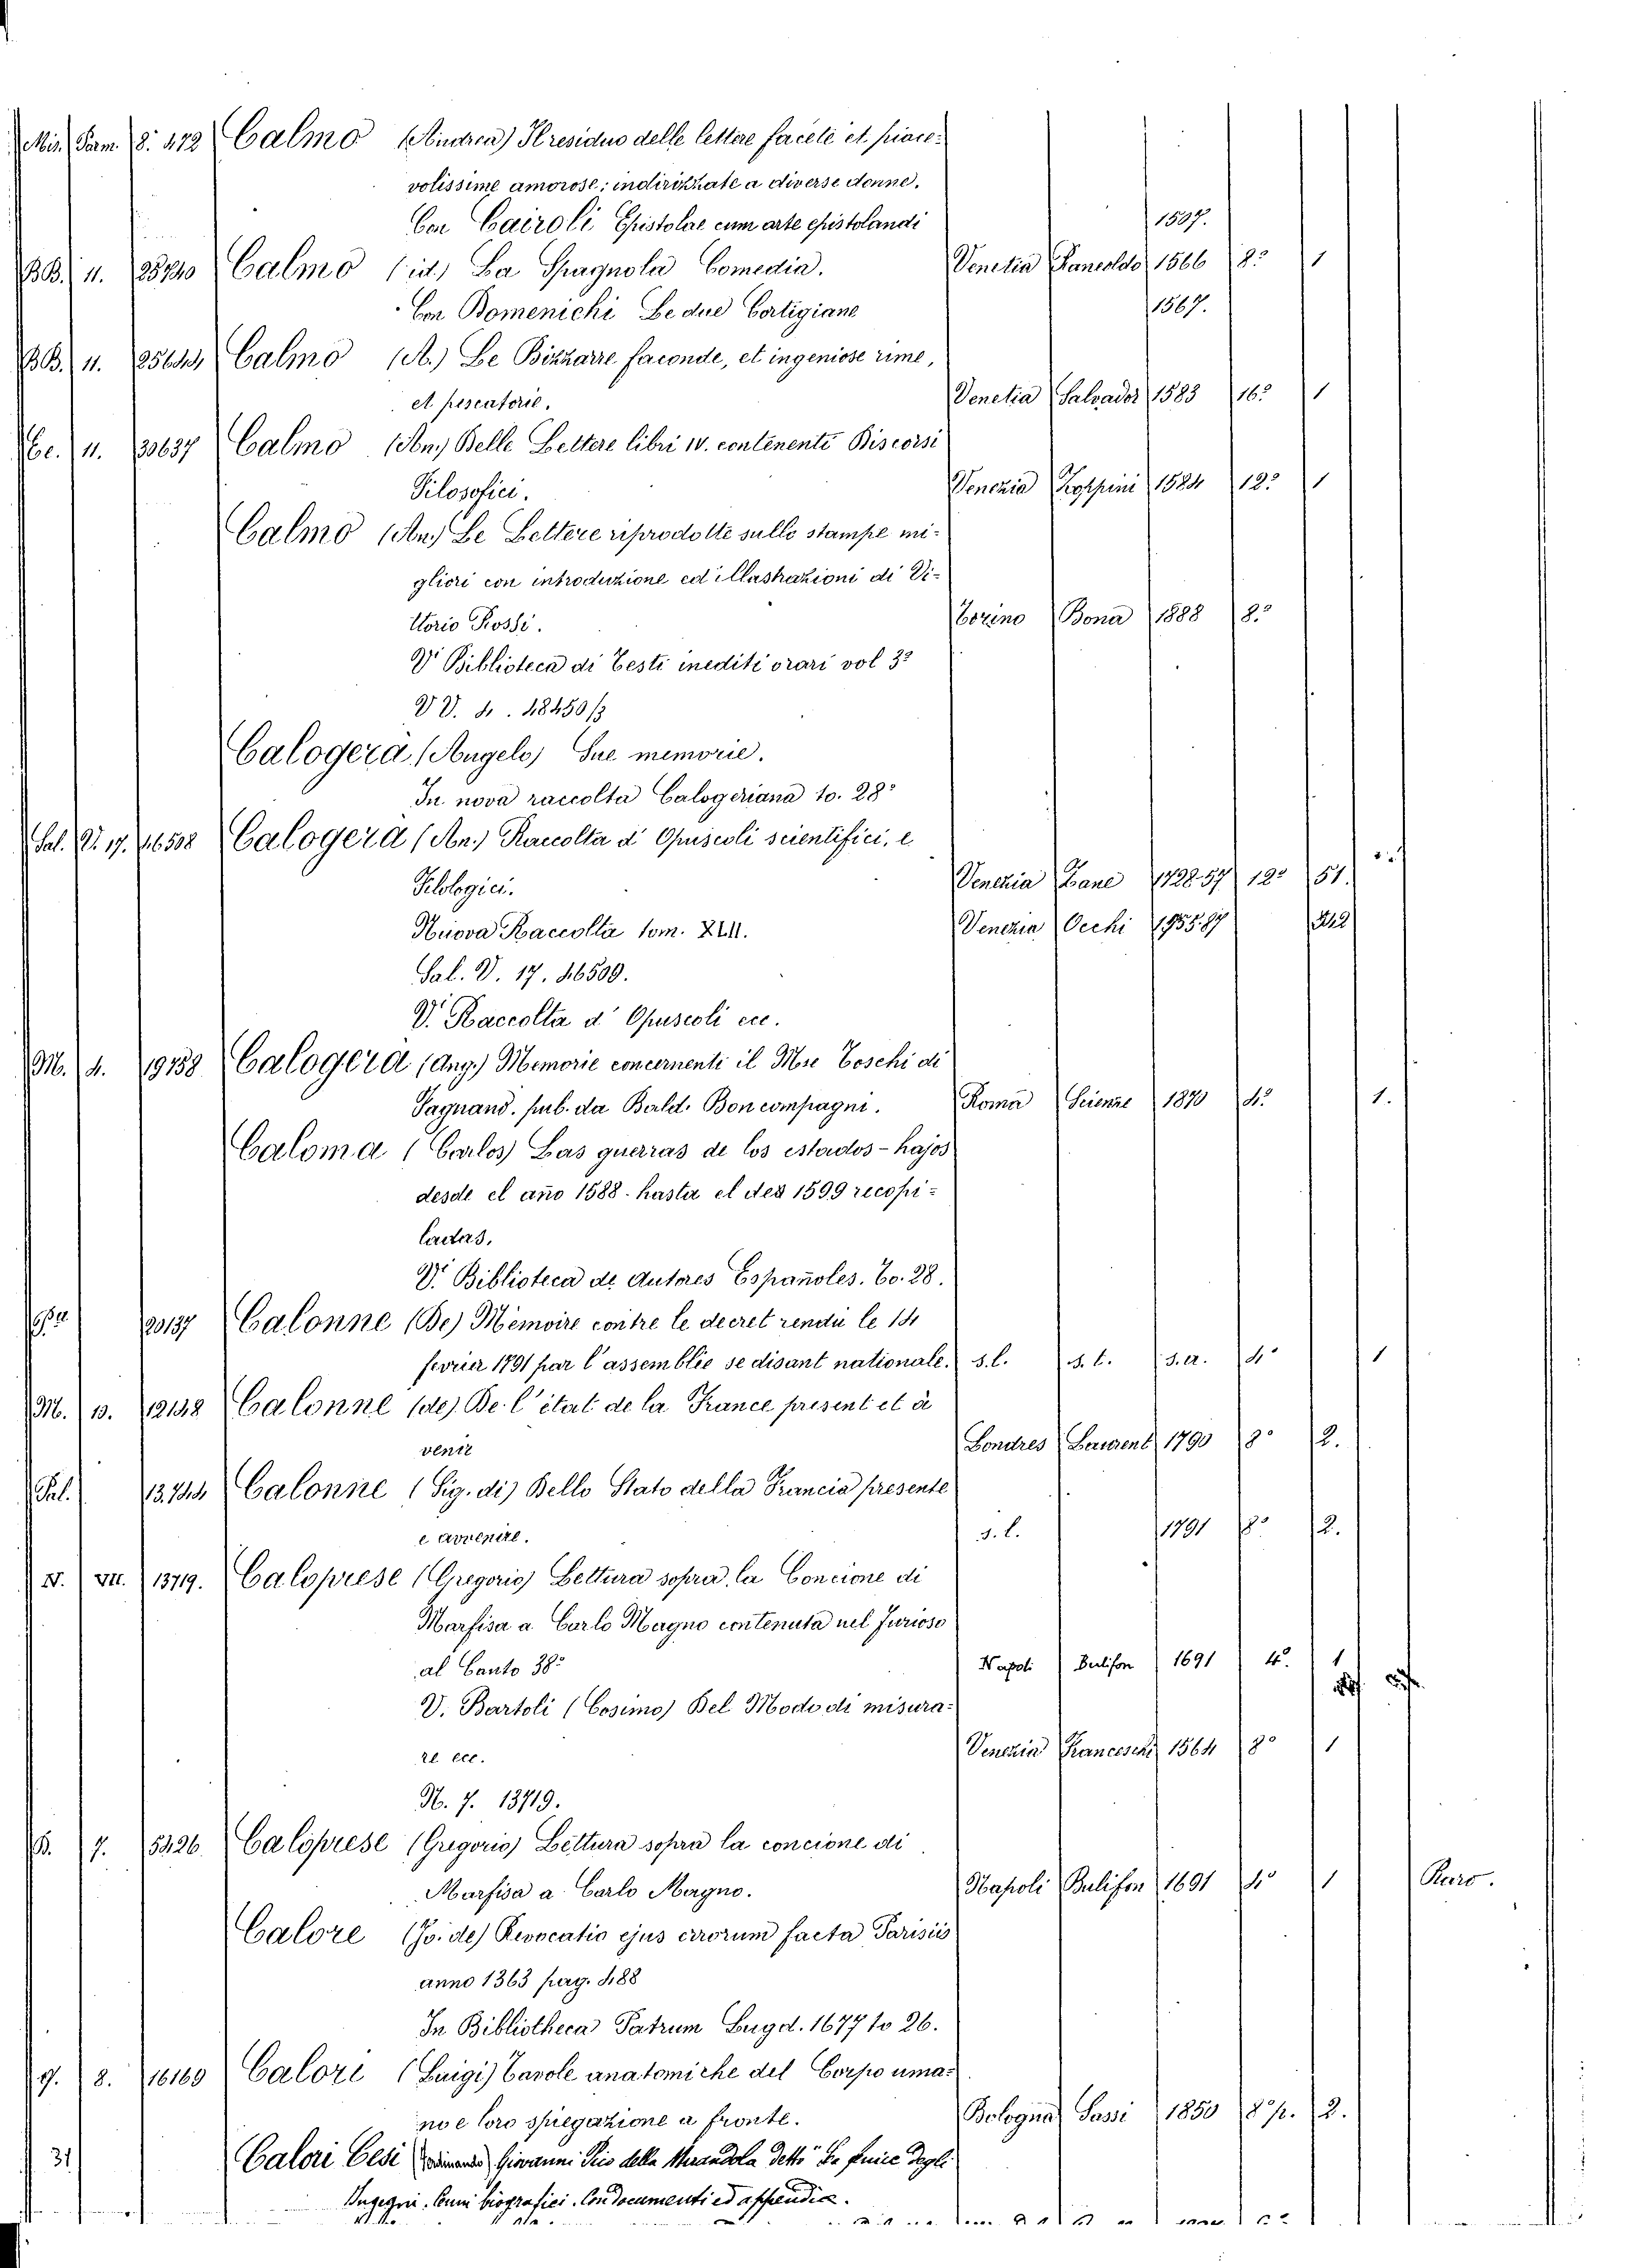 Mis. Parm. 8. 472 Calmo (Andrea) Il residuo delle lettere facete et piace-
volissime amorose; indirizzate a diverse donne.
Con Cairoli Epistolae cum arte epistolandi 1597.
BB. 11. Calmo (id.) La Spagnola Comedia. Venetia 1566 8° 1
Con Domenichi Le due Cortigiane 1567.
BB. 11. 25644 Calmo (A.) Le Bizzarre faconde, et ingeniose rime,
et pescatorie. Venetia Salvador 1583 16° 1
11. 30637 Calmo (An.) Delle Lettere libri IV. contenenti Discorsi
Filosofici. Venezia 1584 12° 1
Calmo (An.) Le Lettere riprodotte sulle stampe mi-
gliori con introduzione ed illustrazioni di Vi-
ttorio Rossi. Torino Bona 1888 8°
Vi Biblioteca di Testi inediti o rari vol 3°
V V. 4. 48450/3
Calogerà (Angelo) Sue memorie.
In nova raccolta Calogeriana to. 28°
Sal. V. 17. 46508 Calogerà (An.) Raccolta d'Opuscoli scientifici, e
Filologici. Venezia Zane 1728.57 12° 51.
Nuova Raccolta tom. XLII. Venezia Occhi 1755.87 42
Sal. V. 17. 46509.
Vi Raccolta d'Opuscoli ecc.
M. 4. 19758 Calogerà (Ang.) Memorie concernenti il Mse Toschi di
Fagnano. pub. da Bald. Boncompagni. Roma Scienze 1870 4° 1.
Caloma (Carlos) Las guerras de los estados-bajos
desde el año 1588. hasta el des 1599 recopi-
ladas.
Vi Biblioteca de Autores Españoles. To. 28.
20137 Calonne (De) Mémoire contre le decret rendu le 14
fevrier 1791 par l'assemblie se disant nationale. s. l. s. t. s. a. 4° 1
M. 13. 12148 Calonne (de) De l'état de la France present et à
venir Londres Laurent 1790 8° 2.
Pal. 13.744 Calonne (Sig. di) Dello Stato della Francia presente
e avvenire. s. l. 1791 8° 2.
N. VII. 13719. Caloprese (Gregorio) Lettura sopra la Concione di
Marfisa a Carlo Magno contenuta nel Furioso
al Canto 38° Napoli Bulifon 1691 4° 1
V. Bartoli (Cosimo) Del Modo di misura-
re ecc. Venezia Franceschi 1564 8° 1
N. 7. 13719.
B. 7. 5426 Caloprese (Gregorio) Lettura sopra la concione di
Marfisa a Carlo Magno. Napoli Bulifon 1691 4° 1 Raro.
Calore (Jo. de) Revocatio ejus errorum facta Parisiis
anno 1363 pag. 488
In Bibliotheca Patrum Lugd. 1677 to 26.
9. 8. 16169 Calori (Luigi) Tavole anatomiche del Corpo uma-
no e loro spiegazione a fronte. Bologna Sassi 1850 8° p. 2.
31 Calori Cesi (Ferdinando) Giovanni Pico della Mirandola detto "La fenice degli
Ingegni. Cenni biografici. Con documenti ed appendice.